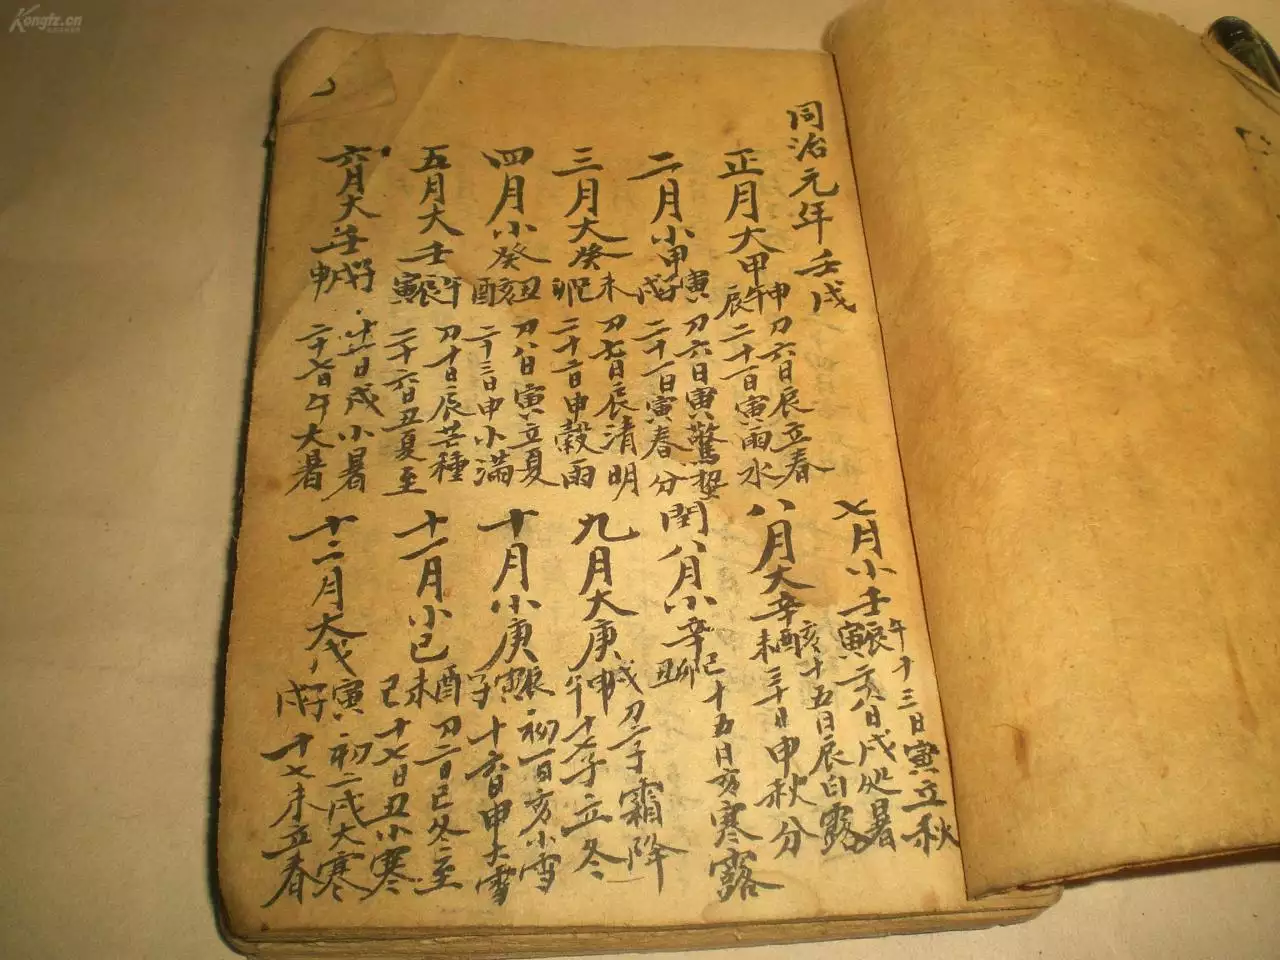 同治元年壬戌
正月大甲
申午辰
刀六日辰立春
二十一日寅雨水
二月小甲
寅子戌
刀六日寅驚蟄
二十一日寅春分
三月大癸
未巳卯
刀七日辰清明
二十二日申穀雨
四月小癸
丑亥酉
刀八日寅立夏
二十三日申小滿
五月大壬
午辰寅
刀十日辰芒種
二十六日丑夏至
六月大壬
子戌申
十一日戌小暑
二十七日午大暑
七月小壬
午辰寅
十三日寅立秋
二十八日戌处暑
八月大辛
亥酉未
十五日辰白露
三十日申秋分
閏八月小辛
巳卯丑
十五日亥寒露
九月大庚
戌申午
刀二子霜降
十七子立冬
十月小庚
辰寅子
初一日亥小雪
十六日申大雪
十一月小己
酉未巳
刀二日巳冬至
十七日丑小寒
十二月大戊
寅子戌
初二戌大寒
十七未立春
Kongfz.cn